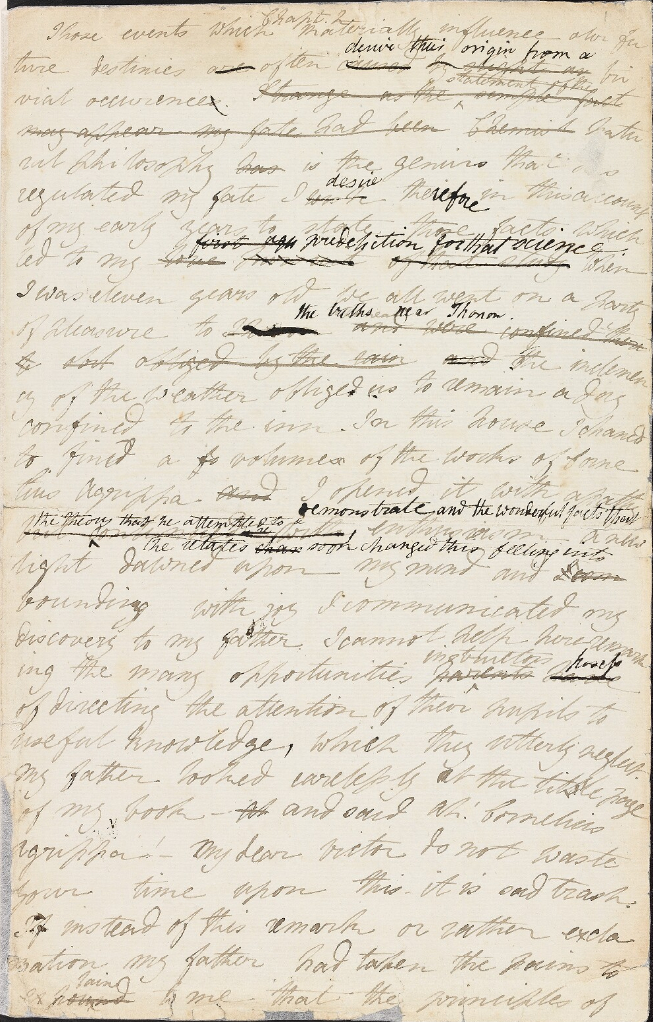 Chapt. 2
Those events which materially influence our fu
ture destinies are often caused by slight or tri
derive their origin from a
vial occurences. Strange as the simple fact
statement of the
may appear my fate had been Chemist Natu
ral philosophy has is the genius that has
regulated my fate I wish therefore in this account
desire
of my early years to state those facts which
led to my predilection for that science. When
I was eleven years old we all went on a party
of pleasure to the baths near Thonon.
and were confined there
to and obliged by the rain and the inclemen
cy of the weather obliged us to remain a day
confined to the inn. In this house I chanced
to find a volume of the works of Corne
lius Agrippa. and I opened it with apathy
the theory that he attempted to demonstrate and the wonderful facts that
he relates soon changed this feeling into
a new
light dawned upon my mind and
bounding with joy I communicated my
discovery to my father. I cannot help here remark
ing the many opportunities instructors possess
of directing the attention of their pupils to
useful knowledge, which they utterly neglect.
my father looked carelessly at the title page
of my book – and said ah! Cornelius
Agrippa! – my dear victor do not waste
your time upon this – it is sad trash.
If instead of this remark or rather excla
mation my father had taken the pains to
explain to me that the principles of